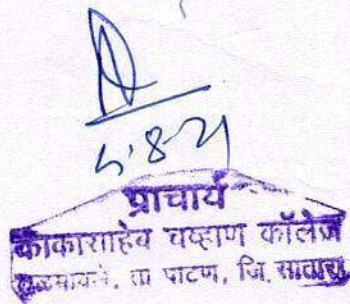 5.8.21
प्राचार्य
काकासाहेब चव्हाण कॉलेज
तळमावले, ता पाटण, जि. सातारा